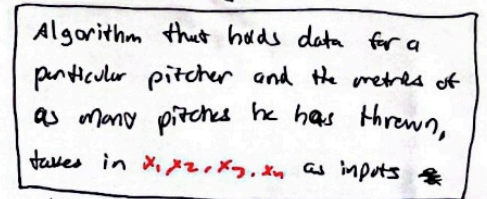 Algorithm that holds data for a
particular pitcher and the metrics of
as many pitches he has thrown,
takes in x₁, x₂, x₃, xₙ as inputs